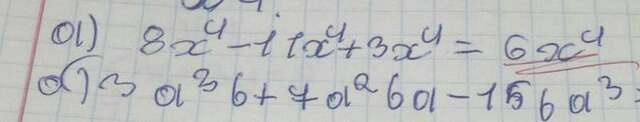 а) 8x⁴ - 11x⁴ + 3x⁴ = 6x⁴
б) 3 a³b + 7a²ba - 15ba³ =